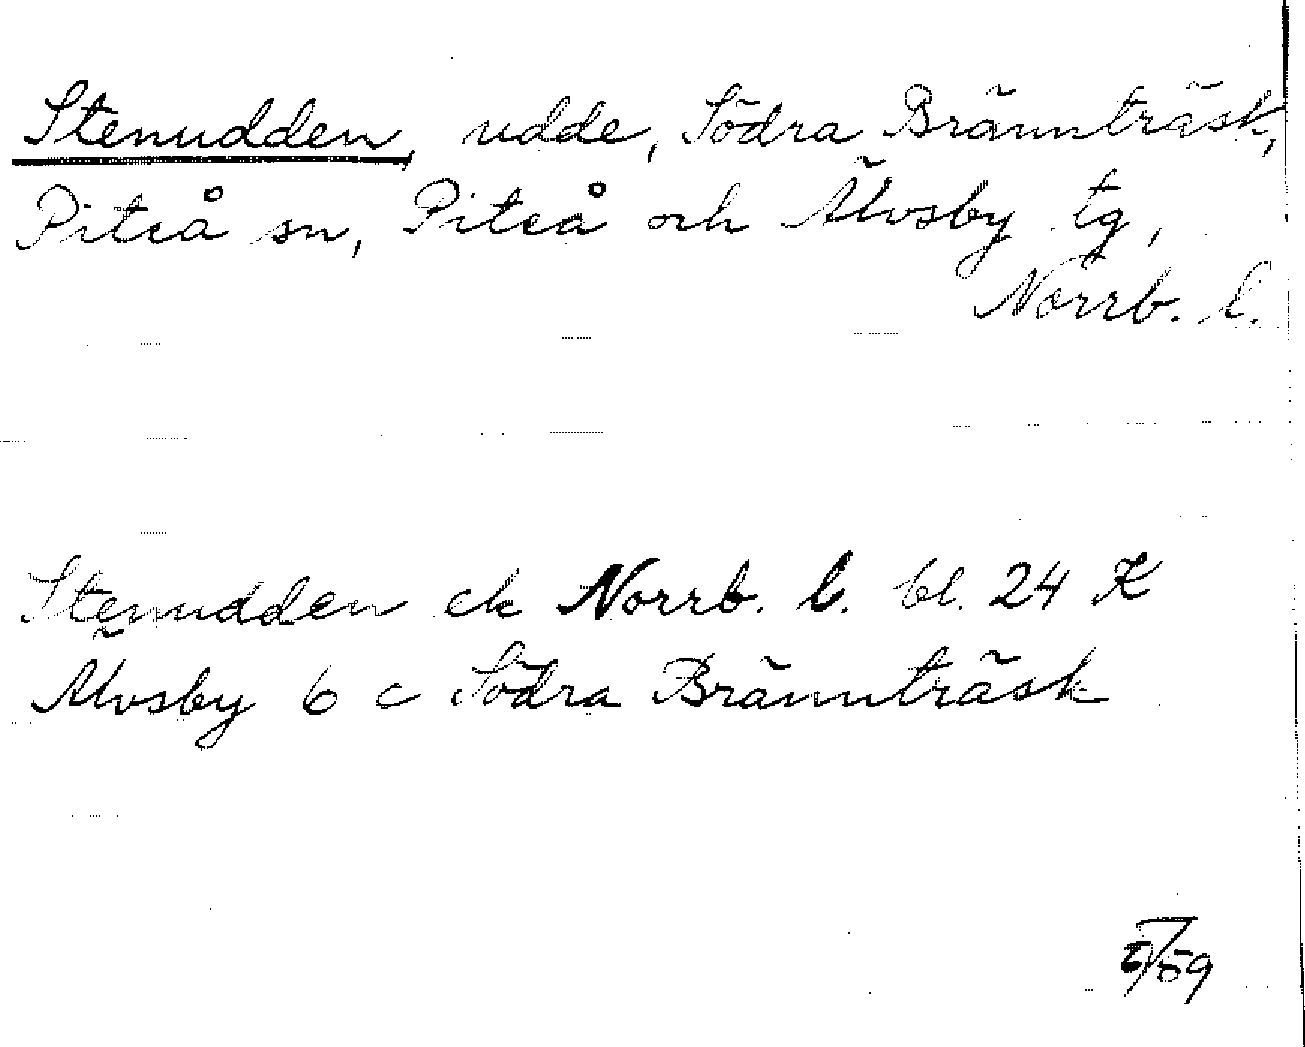 Stenudden, udde, Södra Brännträsk,
Piteå sn, Piteå och Älvsby tg,
Norrb. l.
Stenudden ek Norrb. l. bl. 24 K
Älvsby 6 c Södra Brännträsk